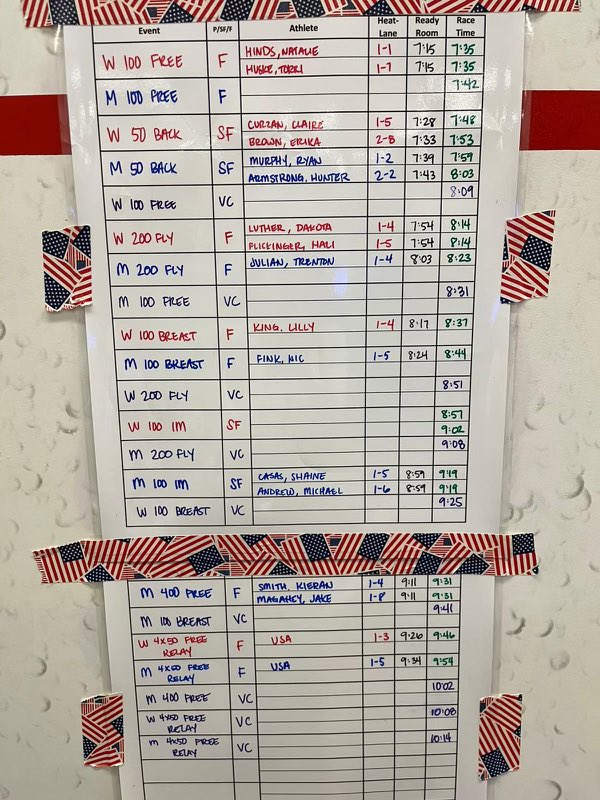 Event P/SF/F Athlete Heat-Lane Ready Room Race Time
W 100 FREE F HINDS, NATALIE 1-1 7:15 7:35
HUSKE, TORRI 1-7 7:15 7:35
M 100 FREE F 7:42
W 50 BACK SF CURZAN, CLAIRE 1-5 7:28 7:48
BROWN, ERIKA 2-8 7:33 7:53
M 50 BACK SF MURPHY, RYAN 1-2 7:39 7:59
ARMSTRONG, HUNTER 2-2 7:43 8:03
W 100 FREE VC 8:09
W 200 FLY F LUTHER, DAKOTA 1-4 7:54 8:14
FLICKINGER, HALI 1-5 7:54 8:14
M 200 FLY F JULIAN, TRENTON 1-4 8:03 8:23
M 100 FREE VC 8:31
W 100 BREAST F KING, LILLY 1-4 8:17 8:37
M 100 BREAST F FINK, NIC 1-5 8:24 8:44
W 200 FLY VC 8:51
W 100 IM SF 8:57
9:02
M 200 FLY VC 9:08
M 100 IM SF CASAS, SHAINE 1-5 8:59 9:19
ANDREW, MICHAEL 1-6 8:59 9:19
W 100 BREAST VC 9:25
M 400 FREE F SMITH, KIERAN 1-4 9:11 9:31
MAGAHEY, JAKE 1-8 9:11 9:31
M 100 BREAST VC 9:41
W 4x50 FREE RELAY F USA 1-3 9:26 9:46
M 4x50 FREE RELAY F USA 1-5 9:34 9:54
M 400 FREE VC 10:02
W 4x50 FREE RELAY VC 10:08
M 4x50 FREE RELAY VC 10:14